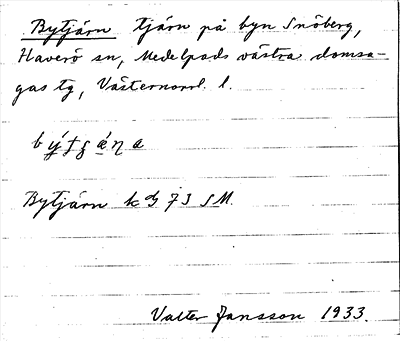 Bytjärn tjärn på byn Snöberg,
Haverö sn, Medelpads västra domsa-
gas tg, Västernorrl. l.
Bytjärn k bl 73 SM.
Valter Jansson 1933.